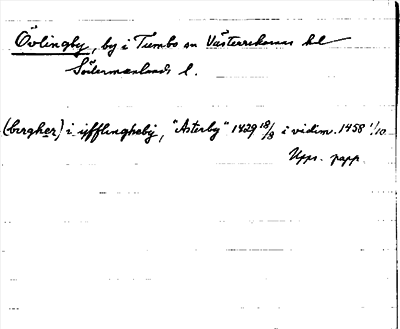 Övlingby, by i Tumbo sn Västerrekarne hd
Södermanlands l.
(birgher) i yfflingheby, "Åsterby" 1429 18/8 i vidim. 1458 1/10
Upps. papp.